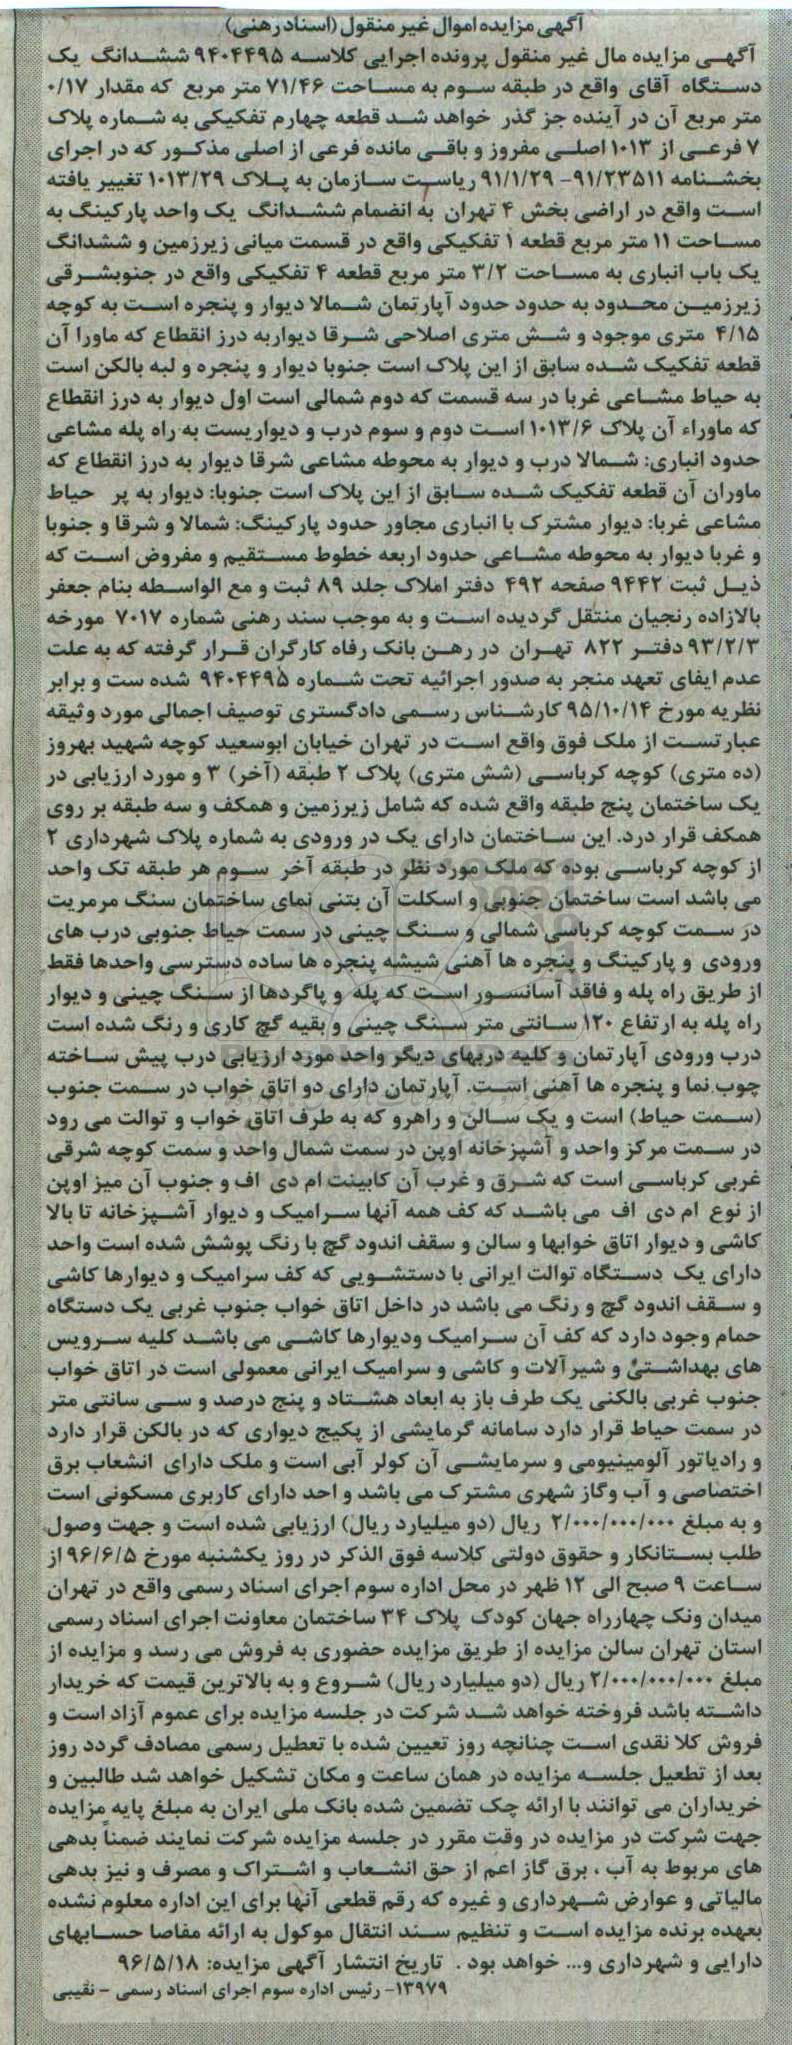 آگهی مزایده اموال غیر منقول (اسناد رهنی)
آگهی مزایده مال غیر منقول پرونده اجرایی کلاسه ۹۴۰۴۴۹۵ ششدانگ یک
دستگاه آقای واقع در طبقه سوم به مساحت ۷۱/۴۶ متر مربع که مقدار ۰/۱۷
متر مربع آن در آینده جز گذر خواهد شد قطعه چهارم تفکیکی به شماره پلاک
۷ فرعی از ۱۰۱۳ اصلی مفروز و باقی مانده فرعی از اصلی مذکور که در اجرای
بخشنامه ۹۱/۲۳۵۱۱- ۹۱/۱/۲۹ ریاست سازمان به پلاک ۱۰۱۳/۲۹ تغییر یافته
است واقع در اراضی بخش ۴ تهران به انضمام ششدانگ یک واحد پارکینگ به
مساحت ۱۱ متر مربع قطعه ۱ تفکیکی واقع در قسمت میانی زیرزمین و ششدانگ
یک باب انباری به مساحت ۳/۲ متر مربع قطعه ۴ تفکیکی واقع در جنوبشرقی
زیرزمین محدود به حدود حدود آپارتمان شمالا دیوار و پنجره است به کوچه
۴/۱۵ متری موجود و شش متری اصلاحی شرقا دیواربه درز انقطاع که ماورا آن
قطعه تفکیک شده سابق از این پلاک است جنوبا دیوار و پنجره و لبه بالکن است
به حیاط مشاعی غربا در سه قسمت که دوم شمالی است اول دیوار به درز انقطاع
که ماوراء آن پلاک ۱۰۱۳/۶ است دوم و سوم درب و دیواریست به راه پله مشاعی
حدود انباری: شمالا درب و دیوار به محوطه مشاعی شرقا دیوار به درز انقطاع که
ماوران آن قطعه تفکیک شده سابق از این پلاک است جنوبا: دیوار به پر حیاط
مشاعی غربا: دیوار مشترک با انباری مجاور حدود پارکینگ: شمالا و شرقا و جنوبا
و غربا دیوار به محوطه مشاعی حدود اربعه خطوط مستقیم و مفروض است که
ذیل ثبت ۹۴۴۲ صفحه ۴۹۲ دفتر املاک جلد ۸۹ ثبت و مع الواسطه بنام جعفر
بالازاده رنجیان منتقل گردیده است و به موجب سند رهنی شماره ۷۰۱۷ مورخه
۹۳/۲/۳ دفتر ۸۲۲ تهران در رهن بانک رفاه کارگران قرار گرفته که به علت
عدم ایفای تعهد منجر به صدور اجرائیه تحت شماره ۹۴۰۴۴۹۵ شده ست و برابر
نظریه مورخ ۹۵/۱۰/۱۴ کارشناس رسمی دادگستری توصیف اجمالی مورد وثیقه
عبارتست از ملک فوق واقع است در تهران خیابان ابوسعید کوچه شهید بهروز
(ده متری) کوچه کرباسی (شش متری) پلاک ۲ طبقه (آخر) ۳ و مورد ارزیابی در
یک ساختمان پنج طبقه واقع شده که شامل زیرزمین و همکف و سه طبقه بر روی
همکف قرار درد. این ساختمان دارای یک در ورودی به شماره پلاک شهرداری ۲
از کوچه کرباسی بوده که ملک مورد نظر در طبقه آخر سوم هر طبقه تک واحد
می باشد است ساختمان جنوبی و اسکلت آن بتنی نمای ساختمان سنگ مرمریت
در سمت کوچه کرباسی شمالی و سنگ چینی در سمت حیاط جنوبی درب های
ورودی و پارکینگ و پنجره ها آهنی شیشه پنجره ها ساده دسترسی واحدها فقط
از طریق راه پله و فاقد آسانسور است که پله و پاگردها از سنگ چینی و دیوار
راه پله به ارتفاع ۱۲۰ سانتی متر سنگ چینی و بقیه گچ کاری و رنگ شده است
درب ورودی آپارتمان و کلیه دربهای دیگر واحد مورد ارزیابی درب پیش ساخته
چوب نما و پنجره ها آهنی است. آپارتمان دارای دو اتاق خواب در سمت جنوب
(سمت حیاط) است و یک سالن و راهرو که به طرف اتاق خواب و توالت می رود
در سمت مرکز واحد و آشپزخانه اوپن در سمت شمال واحد و سمت کوچه شرقی
غربی کرباسی است که شرق و غرب آن کابینت ام دی اف و جنوب آن میز اوپن
از نوع ام دی اف می باشد که کف همه آنها سرامیک و دیوار آشپزخانه تا بالا
کاشی و دیوار اتاق خوابها و سالن و سقف اندود گچ با رنگ پوشش شده است واحد
دارای یک دستگاه توالت ایرانی با دستشویی که کف سرامیک و دیوارها کاشی
و سقف اندود گچ و رنگ می باشد در داخل اتاق خواب جنوب غربی یک دستگاه
حمام وجود دارد که کف آن سرامیک ودیوارها کاشی می باشد کلیه سرویس
های بهداشتی و شیرآلات و کاشی و سرامیک ایرانی معمولی است در اتاق خواب
جنوب غربی بالکنی یک طرف باز به ابعاد هشتاد و پنج درصد و سی سانتی متر
در سمت حیاط قرار دارد سامانه گرمایشی از پکیج دیواری که در بالکن قرار دارد
و رادیاتور آلومینیومی و سرمایشی آن کولر آبی است و ملک دارای انشعاب برق
اختصاصی و آب وگاز شهری مشترک می باشد و احد دارای کاربری مسکونی است
و به مبلغ ۲/۰۰۰/۰۰۰/۰۰۰ ریال (دو میلیارد ریال) ارزیابی شده است و جهت وصول
طلب بستانکار و حقوق دولتی کلاسه فوق الذکر در روز یکشنبه مورخ ۹۶/۶/۵ از
ساعت ۹ صبح الی ۱۲ ظهر در محل اداره سوم اجرای اسناد رسمی واقع در تهران
میدان ونک چهارراه جهان کودک پلاک ۳۴ ساختمان معاونت اجرای اسناد رسمی
استان تهران سالن مزایده از طریق مزایده حضوری به فروش می رسد و مزایده از
مبلغ ۲/۰۰۰/۰۰۰/۰۰۰ ریال (دو میلیارد ریال) شروع و به بالاترین قیمت که خریدار
داشته باشد فروخته خواهد شد شرکت در جلسه مزایده برای عموم آزاد است و
فروش کلا نقدی است چنانچه روز تعیین شده با تعطیل رسمی مصادف گردد روز
بعد از تطعیل جلسه مزایده در همان ساعت و مکان تشکیل خواهد شد طالبین و
خریداران می توانند با ارائه چک تضمین شده بانک ملی ایران به مبلغ پایه مزایده
جهت شرکت در مزایده در وقت مقرر در جلسه مزایده شرکت نمایند ضمناً بدهی
های مربوط به آب ، برق گاز اعم از حق انشعاب و اشتراک و مصرف و نیز بدهی
مالیاتی و عوارض شهرداری و غیره که رقم قطعی آنها برای این اداره معلوم نشده
بعهده برنده مزایده است و تنظیم سند انتقال موکول به ارائه مفاصا حسابهای
دارایی و شهرداری و... خواهد بود . تاریخ انتشار آگهی مزایده: ۹۶/۵/۱۸
۱۳۹۷۹- رئیس اداره سوم اجرای اسناد رسمی - نقیبی